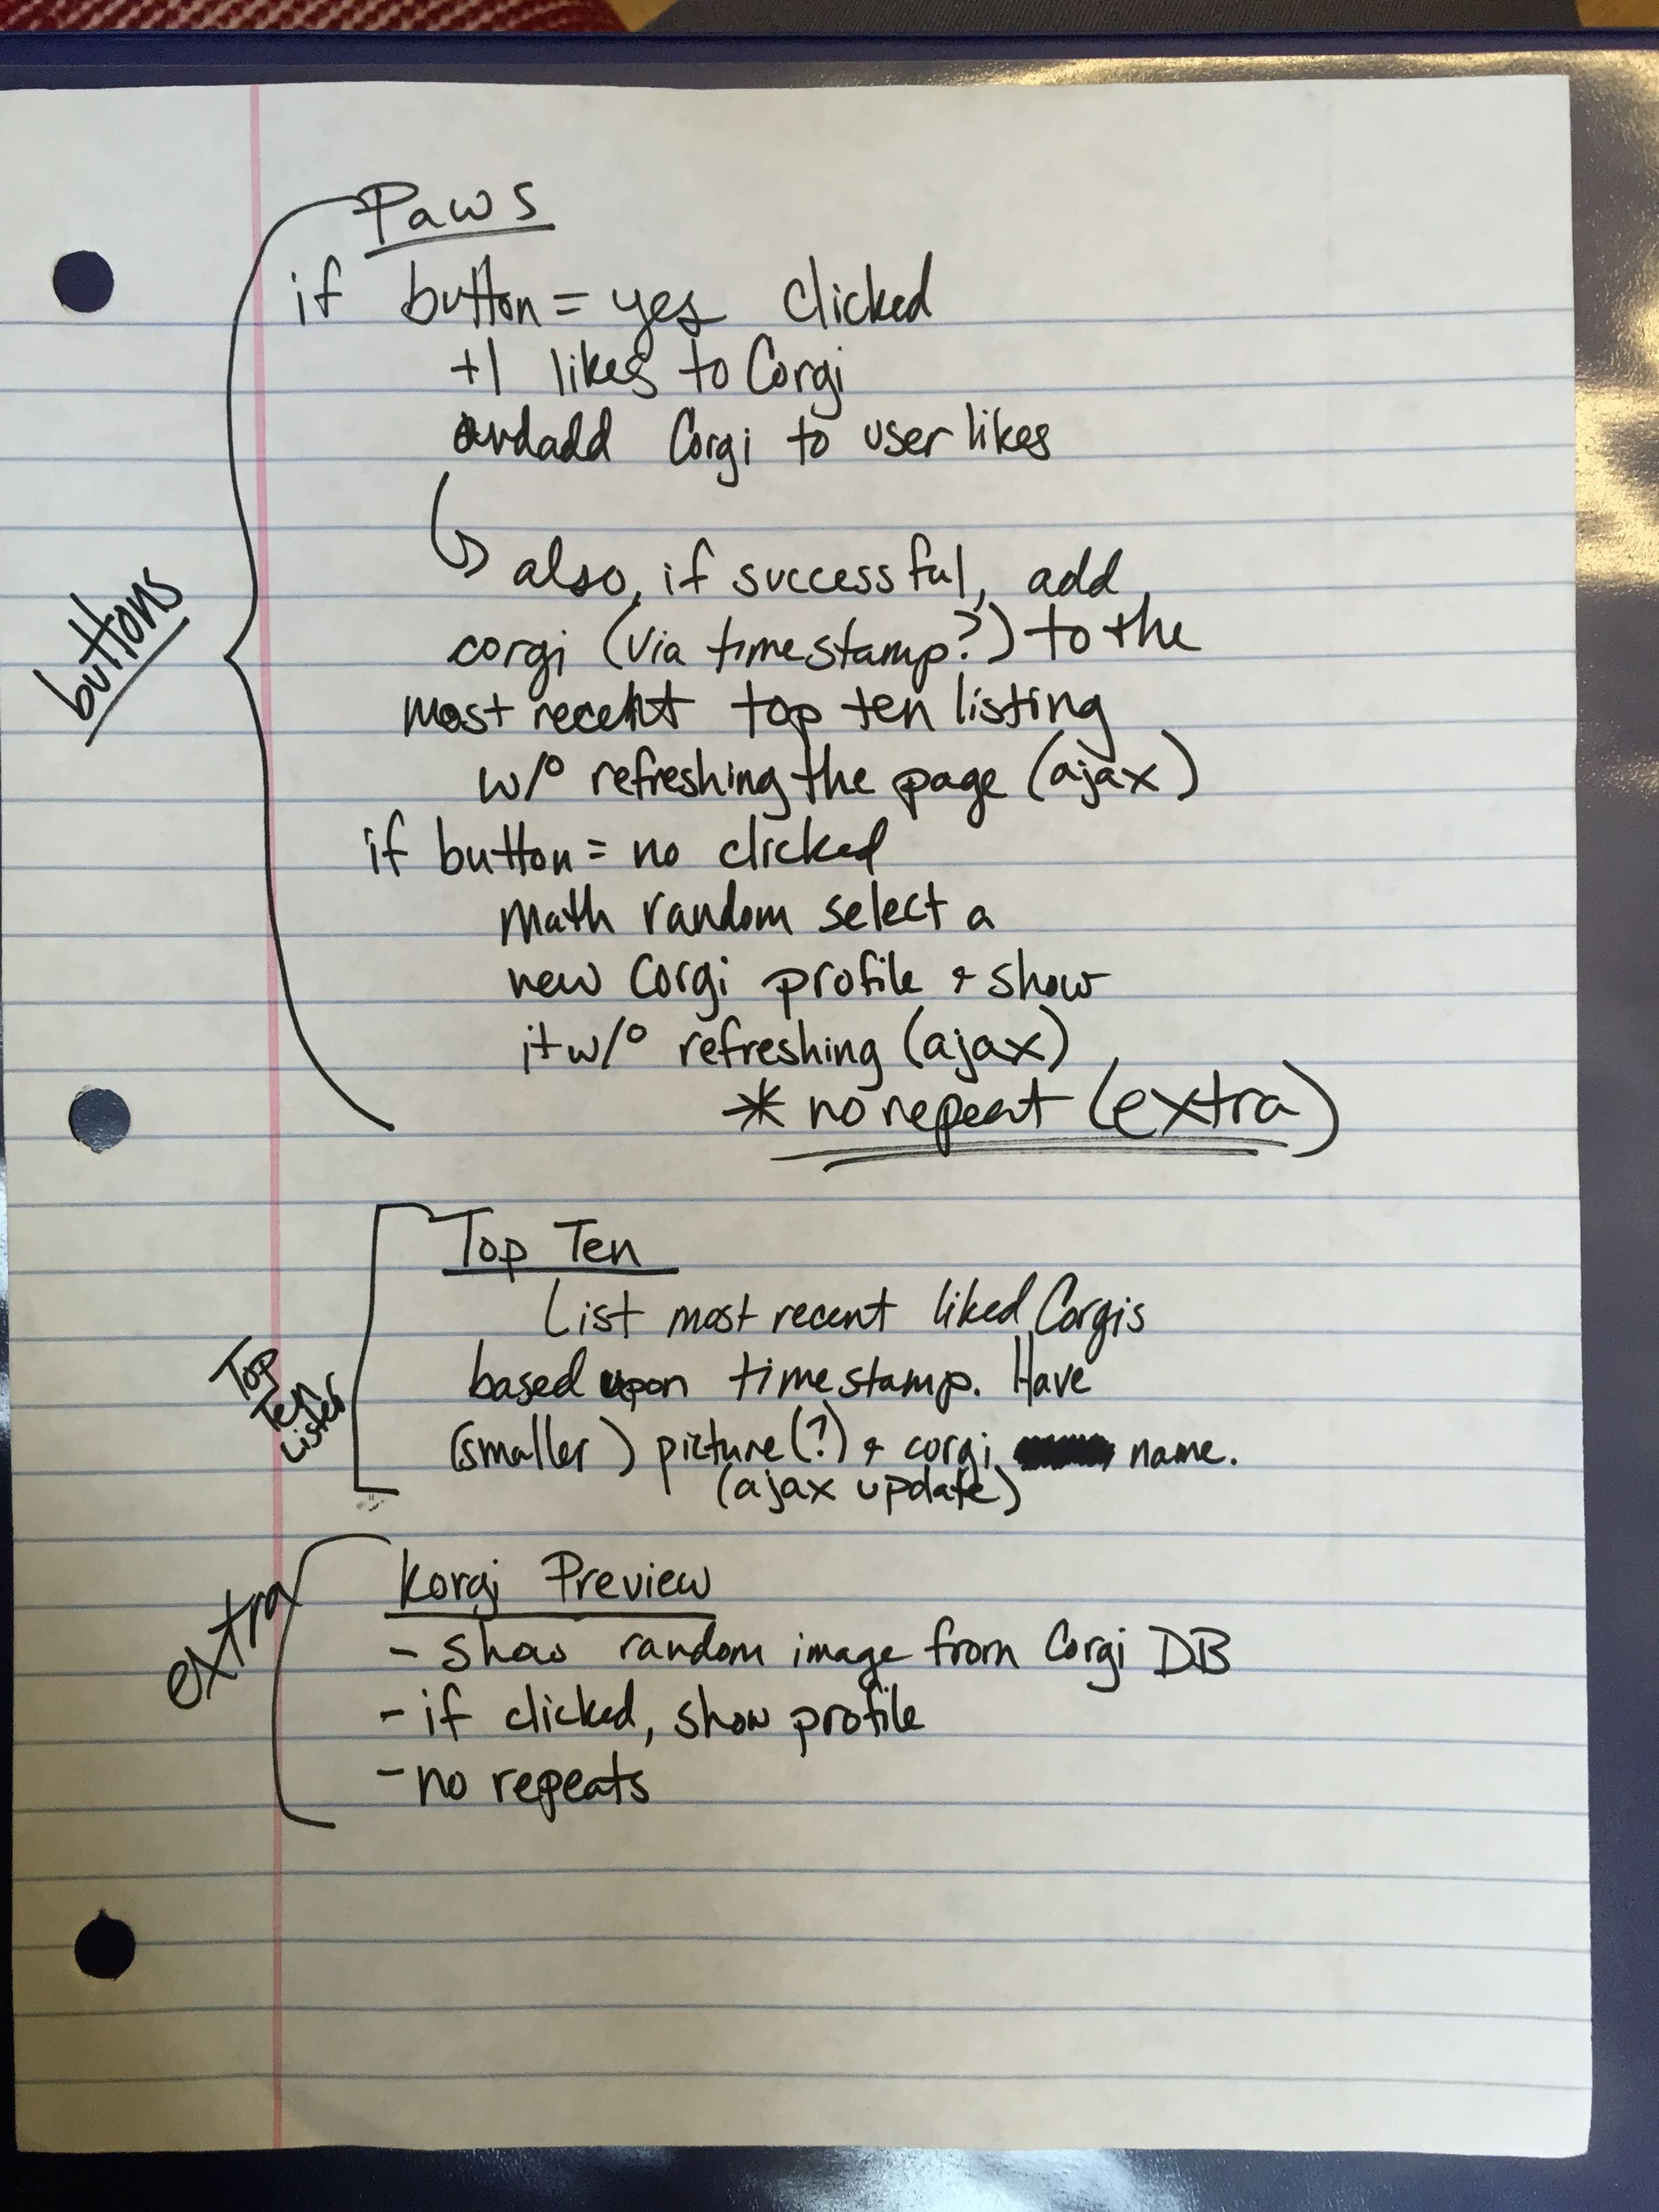 Paws
if button = yes clicked
+1 likes to Corgi
and add Corgi to user likes
also, if successful, add
corgi (via timestamp?) to the
most recent top ten listing
w/o refreshing the page (ajax)
if button = no clicked
math random select a
new Corgi profile + show
it w/o refreshing (ajax)
* no repeat (extra)
buttons
Top Ten
List most recent liked Corgis
based upon timestamp. Have
(smaller) picture (?) + corgi name.
(ajax update)
Top
Ten
Lister
Korgi Preview
- show random image from Corgi DB
- if clicked, show profile
- no repeats
extra